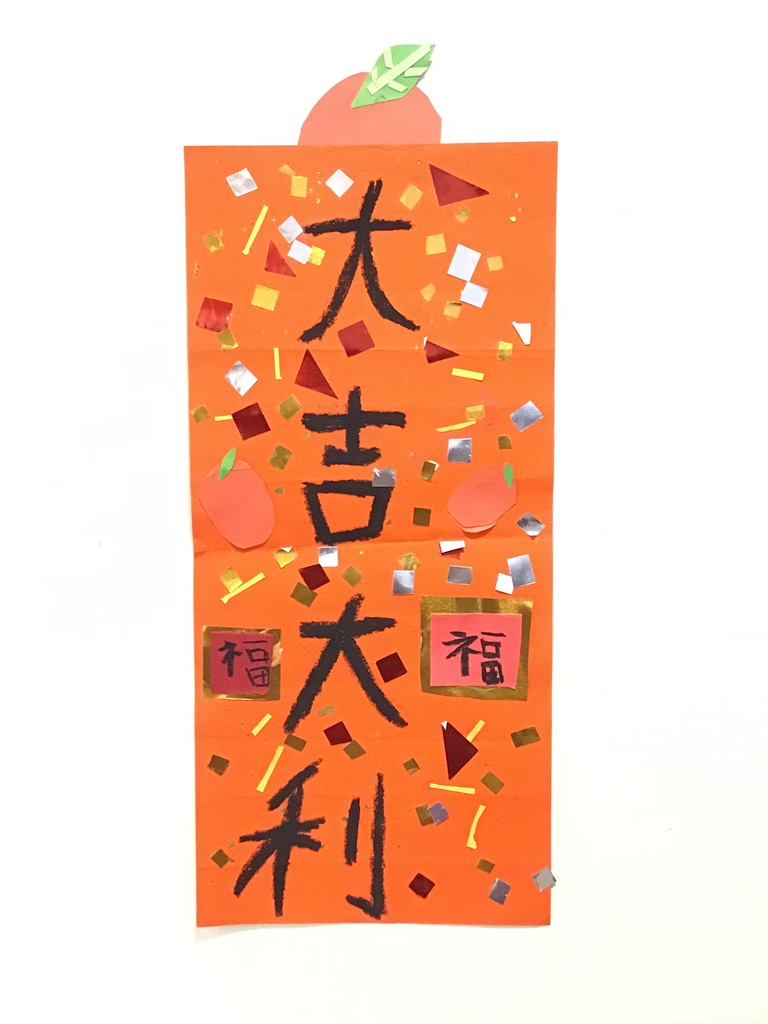 大吉大利
福
福